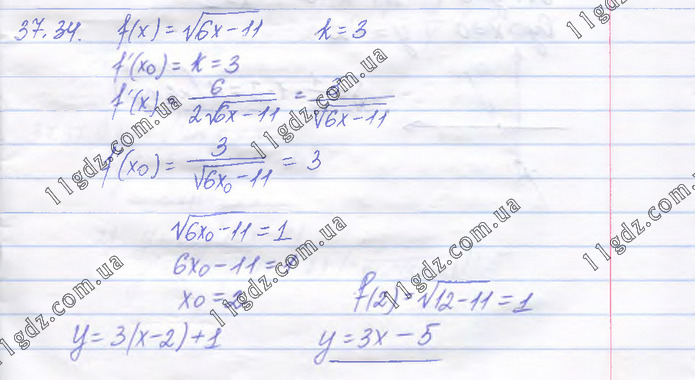 37.34. f(x) = √6x-11 k = 3
f'(x₀) = k = 3
f'(x) = 6 / 2√6x-11 = 3 / √6x-11
f'(x₀) = 3 / √6x₀-11 = 3
√6x₀-11 = 1
6x₀-11 =
x₀ = 2 f(2) = √12-11 = 1
y = 3(x-2)+1 y = 3x - 5
11gdz.com.ua
11gdz.com.ua
11gdz.com.ua
11gdz.com.ua
11gdz.com.ua
11gdz.com.ua
11gdz.com.ua
11gdz.com.ua